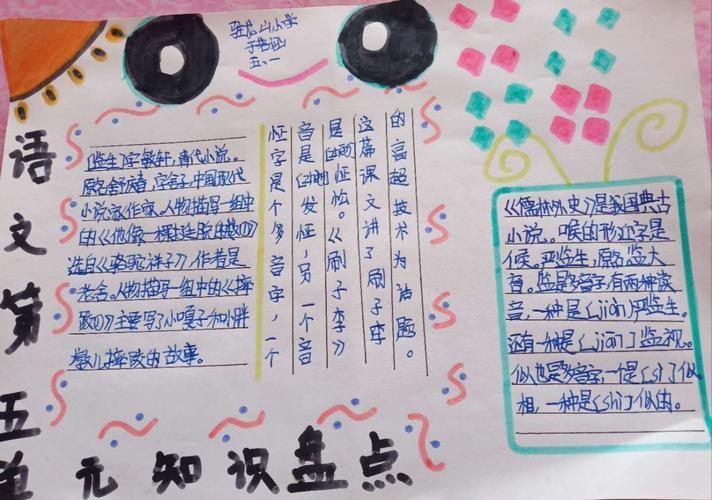 驻龙山小学
五、一
语文第五单
元知识盘点
[监生]字敏轩,清代小说。
原名舒庆春,字舍予,中国现代
小说家作家。人物描写一组中
的《他像一棵挺脱的树》
选自《骆驼祥子》,作者是
老舍。人物描写一组中的《摔
跤》主要写了小嘎子和小胖
墩儿摔跤的故事。
怔字是个多音字,一个
音是发怔,另一个音
是怔怔。《刷子李》
这篇课文讲了刷子李
的高超技术为话题。
《儒林外史》是我国典古
小说。喉的形近字是
侯。严监生,原名监大
育。监是多音字,有两种读
音,一种是[jiàn]严监生。
还有一种是[jiān]监视。
似也是多音字,一个是[sì]似
相,一种是[shì]似的。